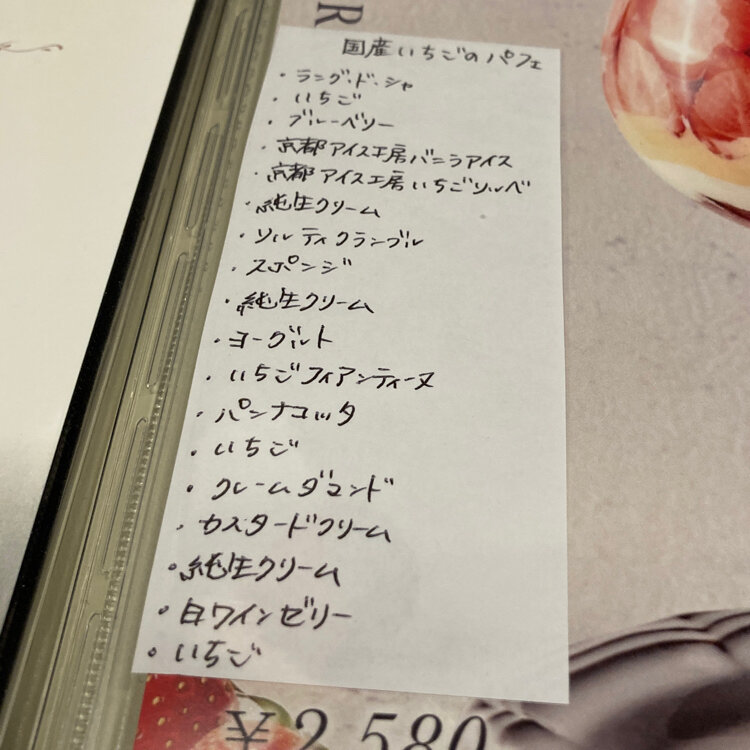 R
国産いちごのパフェ
・ラング・ド・シャ
・いちご
・ブルーベリー
・京都アイス工房バニラアイス
・京都アイス工房いちごソルベ
・純生クリーム
・ソルティクランブル
・スポンジ
・純生クリーム
・ヨーグルト
・いちごフィアンティーヌ
・パンナコッタ
・いちご
・クレームダマンド
・カスタードクリーム
・純生クリーム
・白ワインゼリー
・いちご
¥2,580